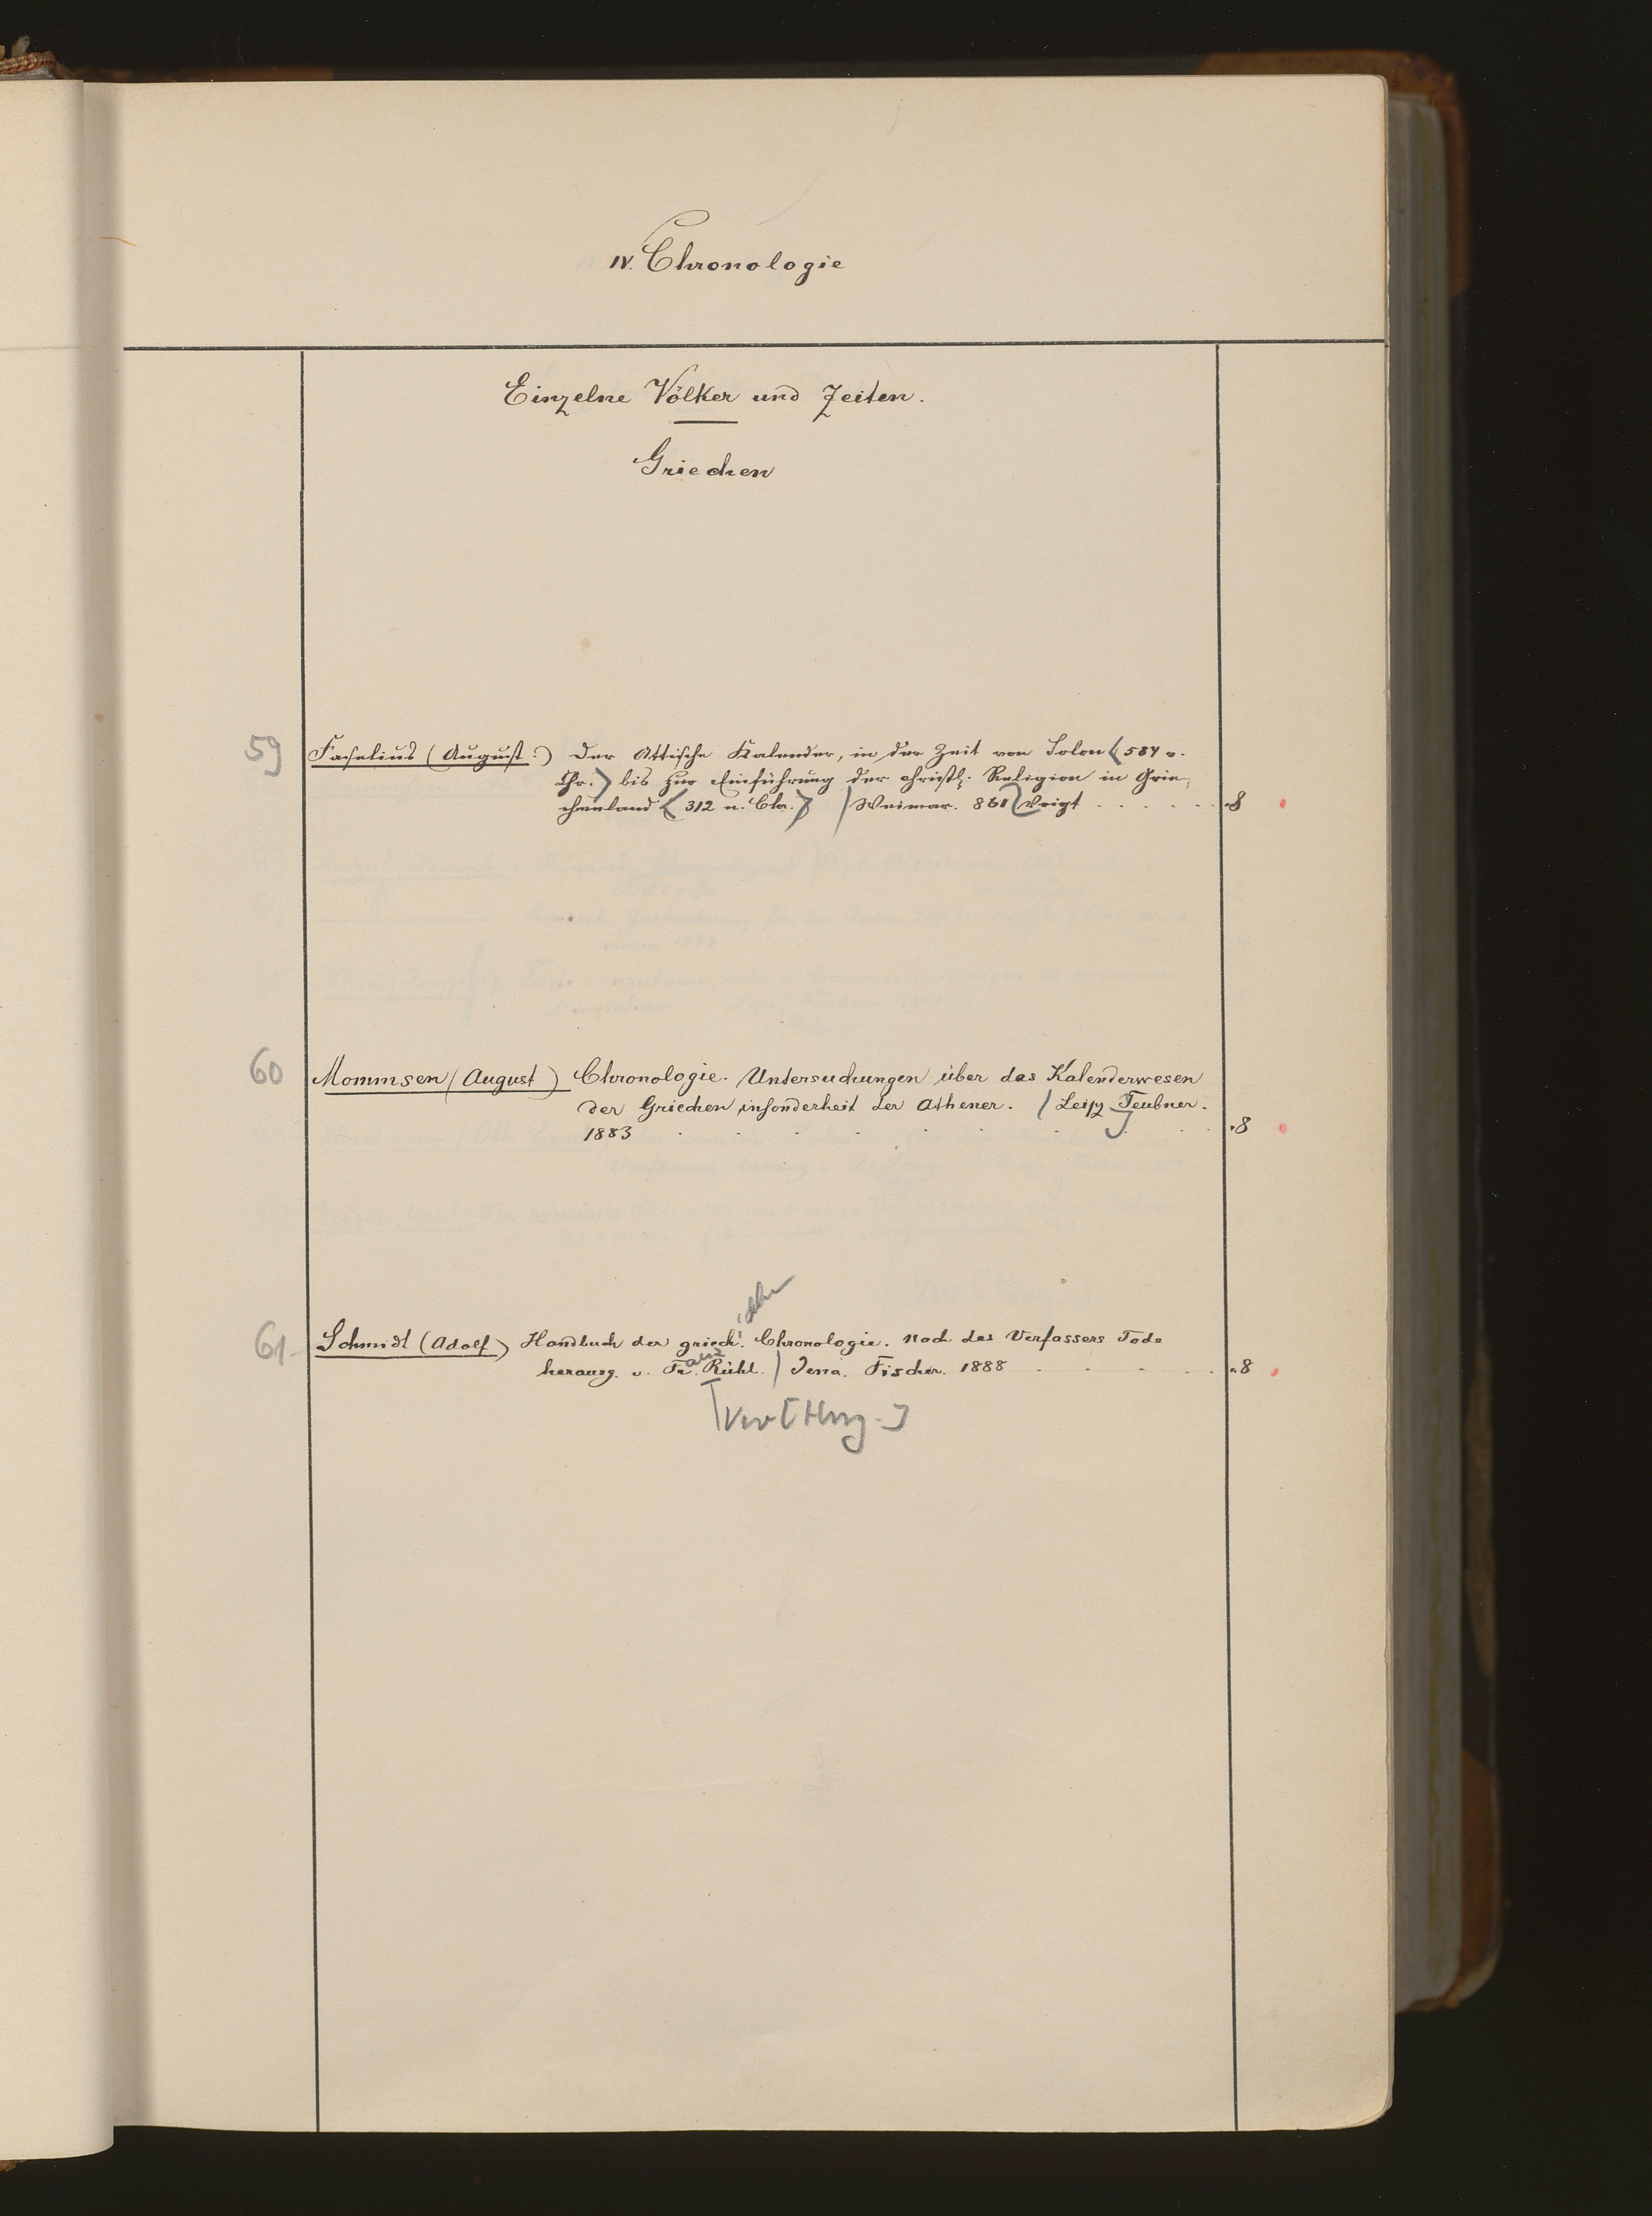 IV. Chronologie
Einzelne Völker und Zeiten.
Griechen
59 Faselius (August.) Der Attische Kalender, in der Zeit von Solon (584 v.
Chr.) bis zur Einführung der christl. Religion in Grie-
chenland (312 n. Chr.) / Weimar. 861 Voigt . . . . . . 8
60 Mommsen (August) Chronologie. Untersuchungen über das Kalenderwesen
der Griechen insonderheit der Athener. / Leipz Teubner.
1883 . . . . . . . . . 8
ischen
61 Schmidt (Adolf) Handbuch der griech. Chronologie. Nach des Verfassers Tode
anz
herausg. v. Fr. Rühl. / Jena. Fischer. 1888 . . . . . 8
Verw [Hrsg.]